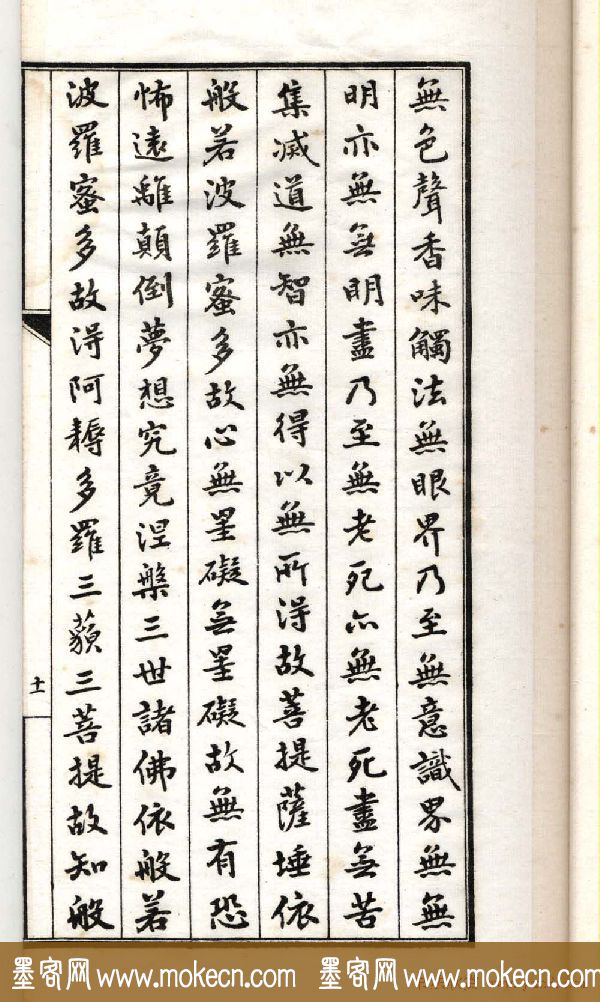 無色聲香味觸法無眼界乃至無意識界無無
明亦無無明盡乃至無老死亦無老死盡無苦
集滅道無智亦無得以無所得故菩提薩埵依
般若波羅蜜多故心無罣礙無罣礙故無有恐
怖遠離顛倒夢想究竟涅槃三世諸佛依般若
波羅蜜多故得阿耨多羅三藐三菩提故知般
十一
墨客网 www.mokecn.com 墨客网 www.mokecn.com